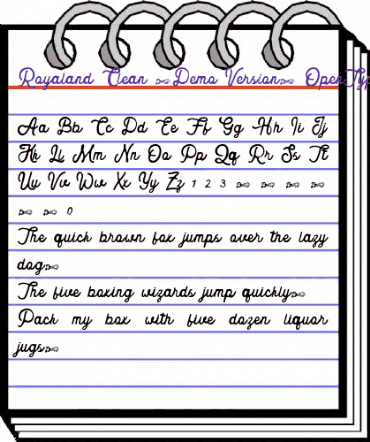 Royaland Clean Demo Version OpenTyp
Aa Bb Cc Dd Ee Ff Gg Hh Ii Jj
Kk Ll Mm Nn Oo Pp Qq Rr Ss Tt
Uu Vv Ww Xx Yy Zz 1 2 3
0
The quick brown fox jumps over the lazy
dog
The five boxing wizards jump quickly
Pack my box with five dozen liquor
jugs